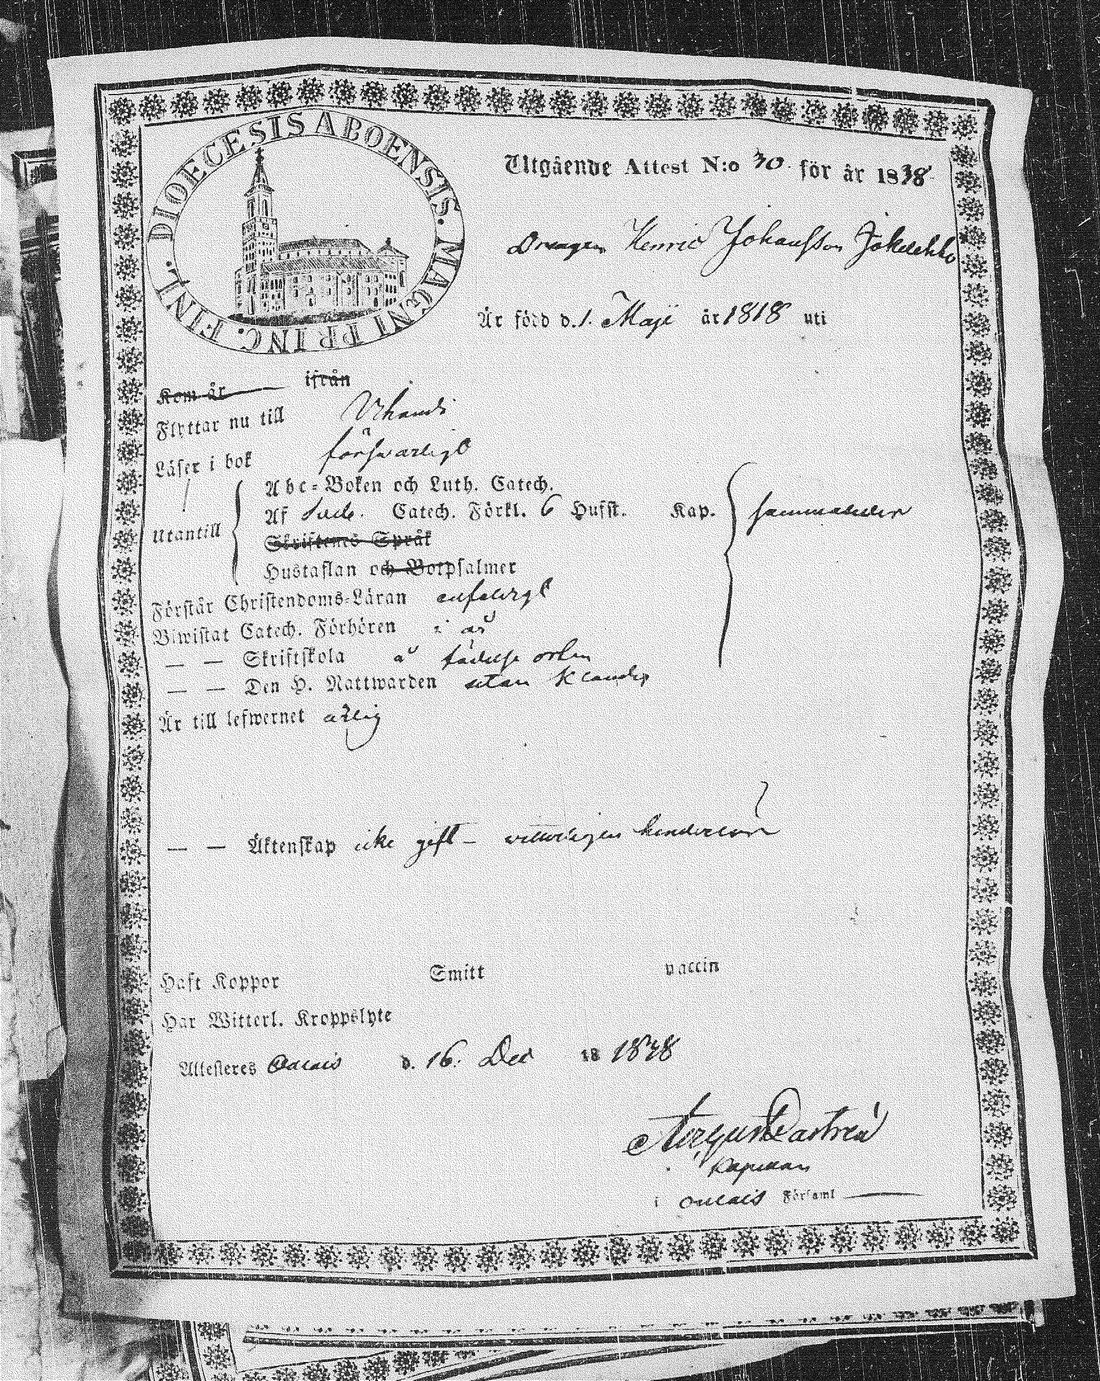 DIOECESIS ABOENSIS. MAGNI PRINC. FINL.
Utgående Attest N:o 30 för år 1838
Drengen Henric Johansson
Är född d. 1. Maji år 1818 uti
Kom år ifrån
Flyttar nu till
Läser i bok försvarligt
Utantill
Abc-Boken och Luth. Catech.
Af Catech. Förkl. 6 Hufst. Kap.
Skriftenes Språk
Hustaflan och Botpsalmer
Förstår Christendoms-Läran
Biwistat Catech. Förhören i år
— — Skriftskola å födelse orten
— — Den H. Nattwarden utan
Är till lefwernet ärlig
— — Äktenskap icke gift –
Haft Koppor Smitt vaccin
Har Witterl. Kroppslyte
Attesteres d. 16. Dec 18 1838
August Castrén
Kapellan
i Församl